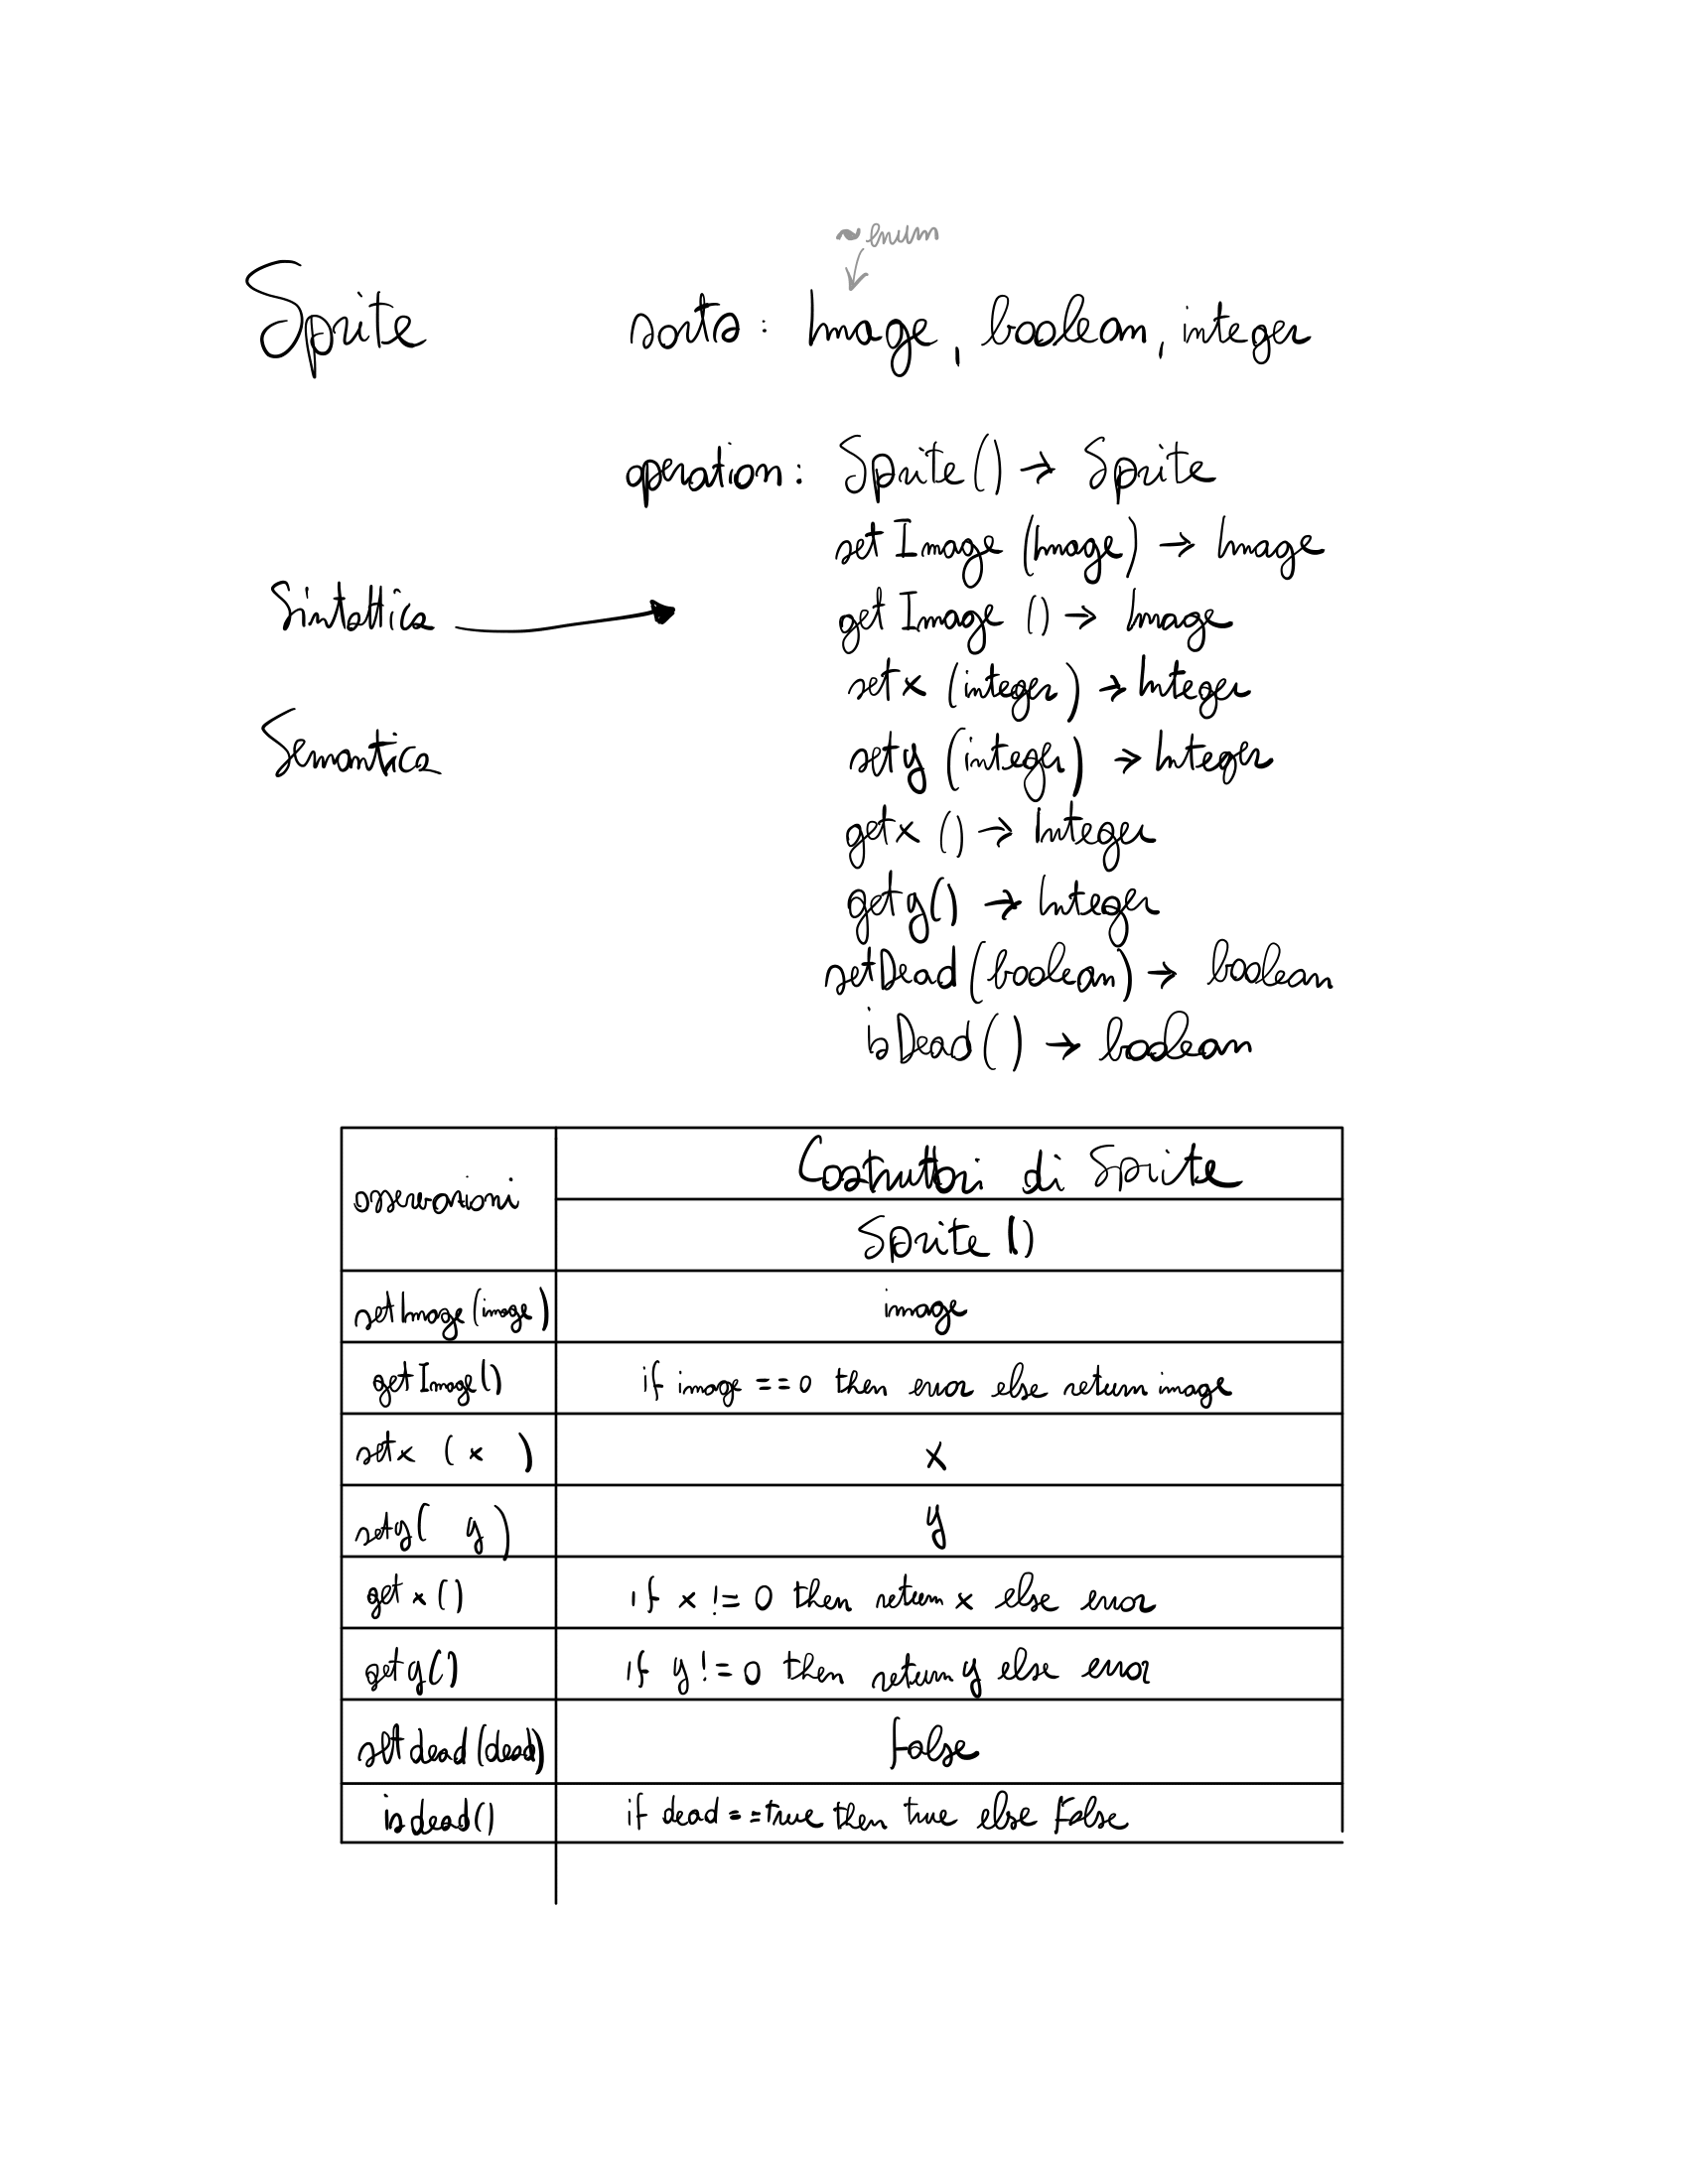 ~ enum
Sprite sorts: Image, boolean, integer
operation: Sprite () → Sprite
setImage (Image) → Image
Sintattica
getImage () → Image
setx (integer) → Integer
Semantica
sety (integer) → Integer
getx () → Integer
gety() → Integer
setDead (boolean) → boolean
isDead () → boolean
osservazioni
Costruttori di Sprite
Sprite ()
setImage (image) image
getImage() if image == 0 then error else return image
setx ( x ) x
sety( y ) y
getx () if x != 0 then return x else error
gety() if y != 0 then return y else error
setdead (dead) false
isdead() if dead == true then true else False